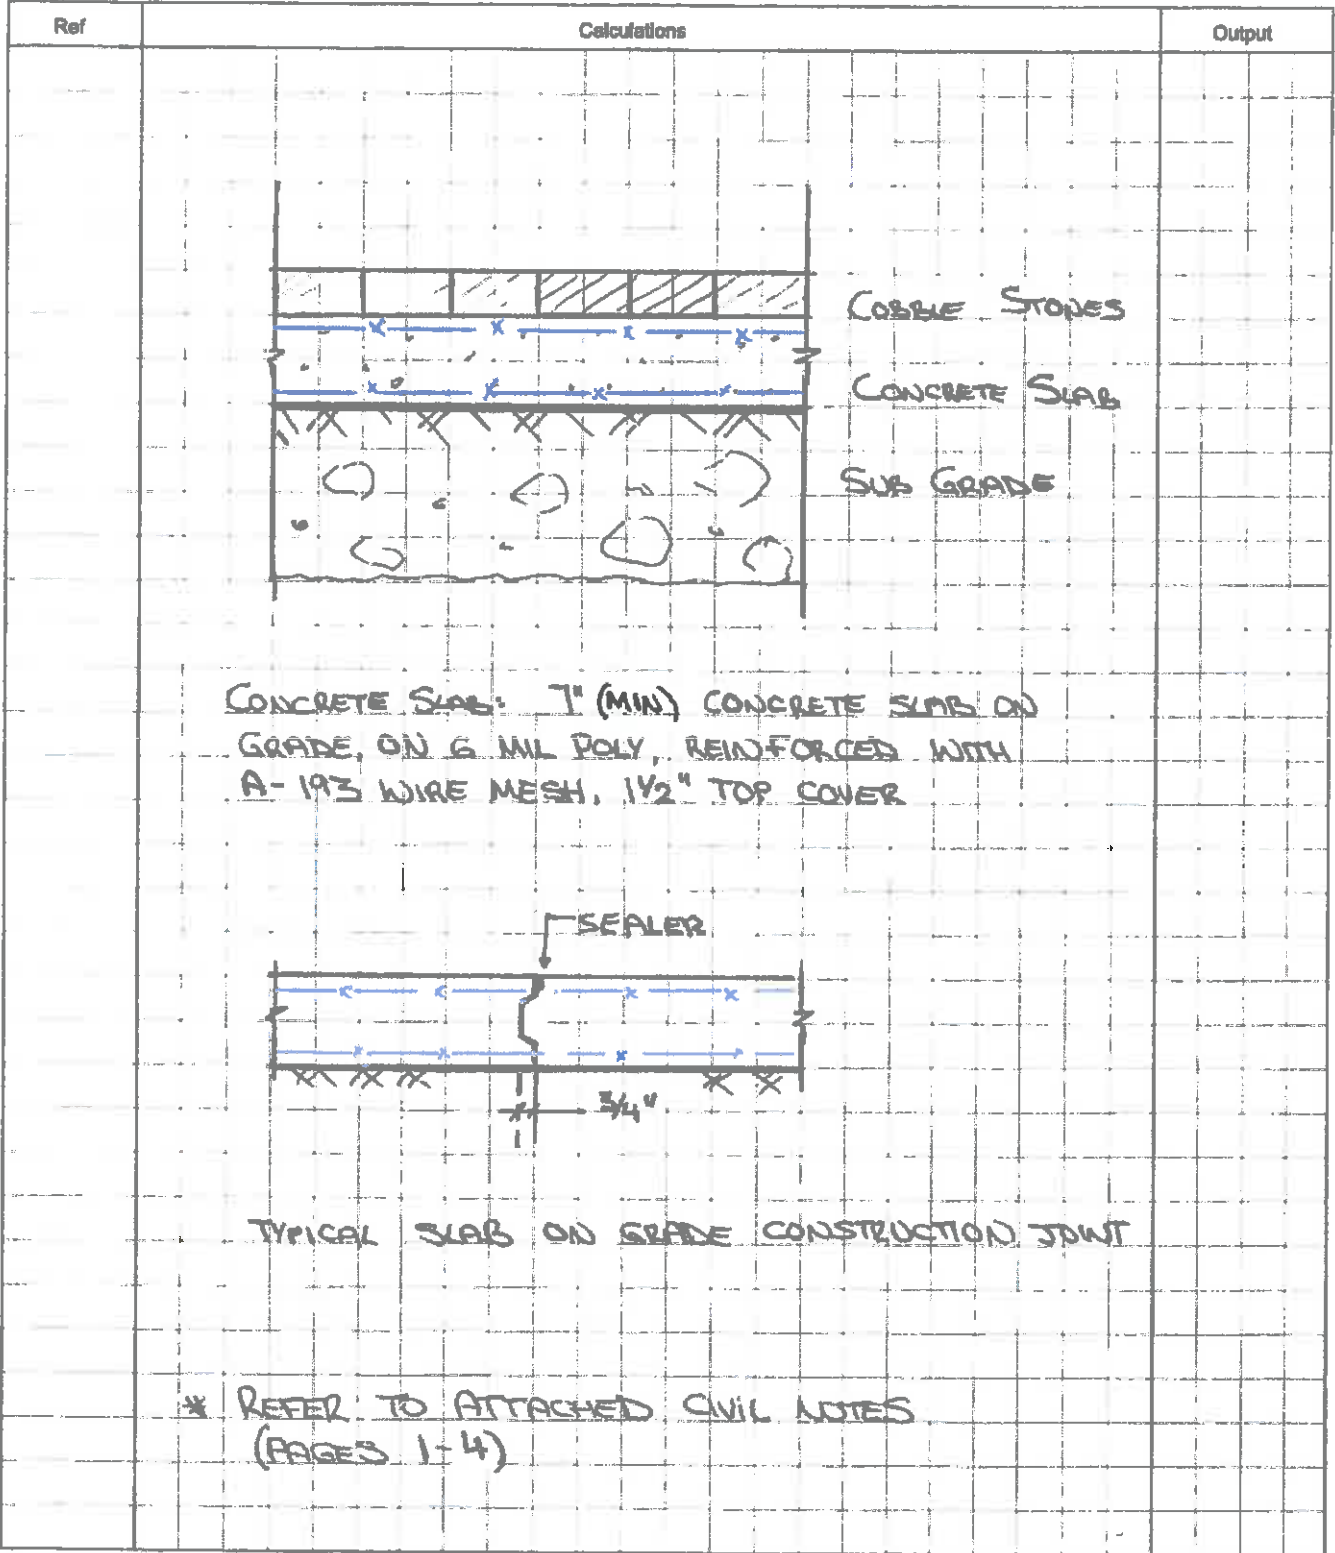 Ref
Calculations
Output
COBBLE STONES
CONCRETE SLAB
SUB GRADE
CONCRETE SLAB: 7" (MIN) CONCRETE SLAB ON
GRADE, ON 6 MIL POLY, REINFORCED WITH
A-193 WIRE MESH, 1 1/2" TOP COVER
SEALER
3/4"
TYPICAL SLAB ON GRADE CONSTRUCTION JOINT
* REFER TO ATTACHED CIVIL NOTES
(PAGES 1-4)